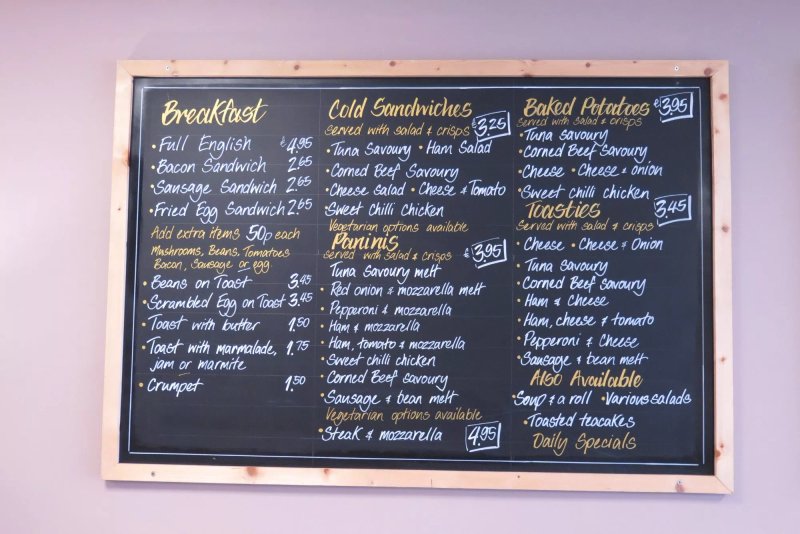 Breakfast
• Full English £4.95
• Bacon Sandwich 2.65
• Sausage Sandwich 2.65
• Fried Egg Sandwich 2.65
Add extra items 50p each
Mushrooms, Beans, Tomatoes
Bacon, Sausage or egg.
• Beans on Toast 3.45
• Scrambled Egg on Toast 3.45
• Toast with butter 1.50
• Toast with marmalade, 1.75
jam or marmite
• Crumpet 1.50
Cold Sandwiches
served with salad & crisps £3.25
• Tuna Savoury • Ham Salad
• Corned Beef Savoury
• Cheese salad • Cheese & Tomato
• Sweet Chilli Chicken
Vegetarian options available
Paninis
served with salad & crisps £3.95
Tuna savoury melt
• Red onion & mozzarella melt
• Pepperoni & mozzarella
• Ham & mozzarella
• Ham, tomato & mozzarella
• Sweet chilli chicken
Corned Beef savoury
• Sausage & bean melt
Vegetarian options available
• Steak & mozzarella 4.95
Baked Potatoes £3.95
served with salad & crisps
• Tuna savoury
• Corned Beef Savoury
• Cheese • Cheese & onion
• Sweet chilli chicken
Toasties 3.45
Served with salad & crisps
• Cheese • Cheese & Onion
• Tuna savoury
• Corned Beef savoury
• Ham & Cheese
• Ham, cheese & tomato
• Pepperoni & Cheese
• Sausage & bean melt
Also Available
• Soup & a roll • Various salads
• Toasted teacakes
Daily Specials